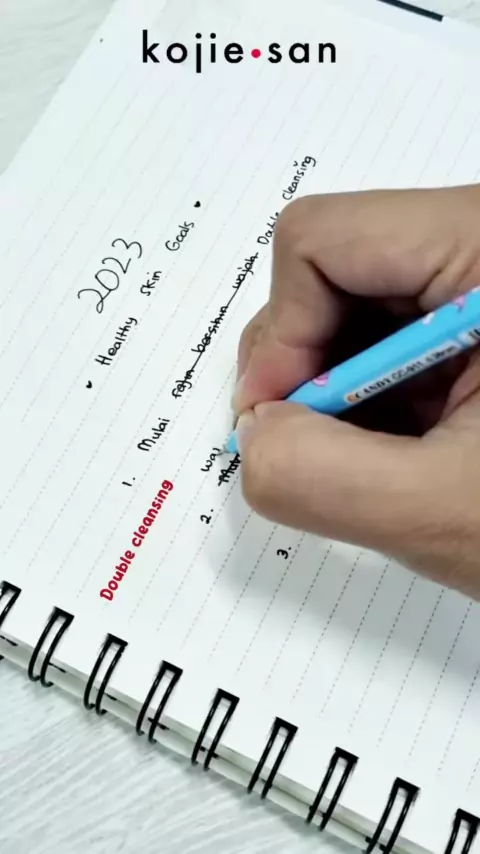 kojie•san
2023
♥ Healthy Skin Goals ♥
1. Mulai rajin bersihin wajah Double Cleansing
Double cleansing
2.
3.
CANDY